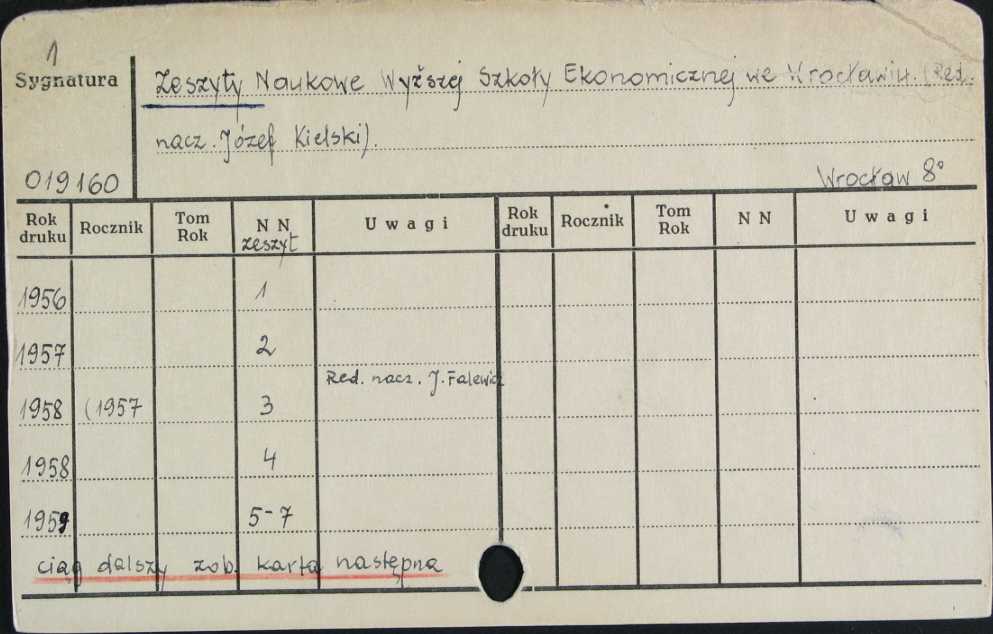 1
Sygnatura
Zeszyty Naukowe Wyższej Szkoły Ekonomicznej we Wrocławiu. (Red.
nacz. Józef Kielski)
019160
Wrocław 8°
Rok druku Rocznik Tom Rok N N zeszyt Uwagi Rok druku Rocznik Tom Rok N N Uwagi
1956 1
1957 2
Red. nacz. J. Falewicz
1958 (1957 3
1958 4
1959 5-7
ciąg dalszy zob. karta następna